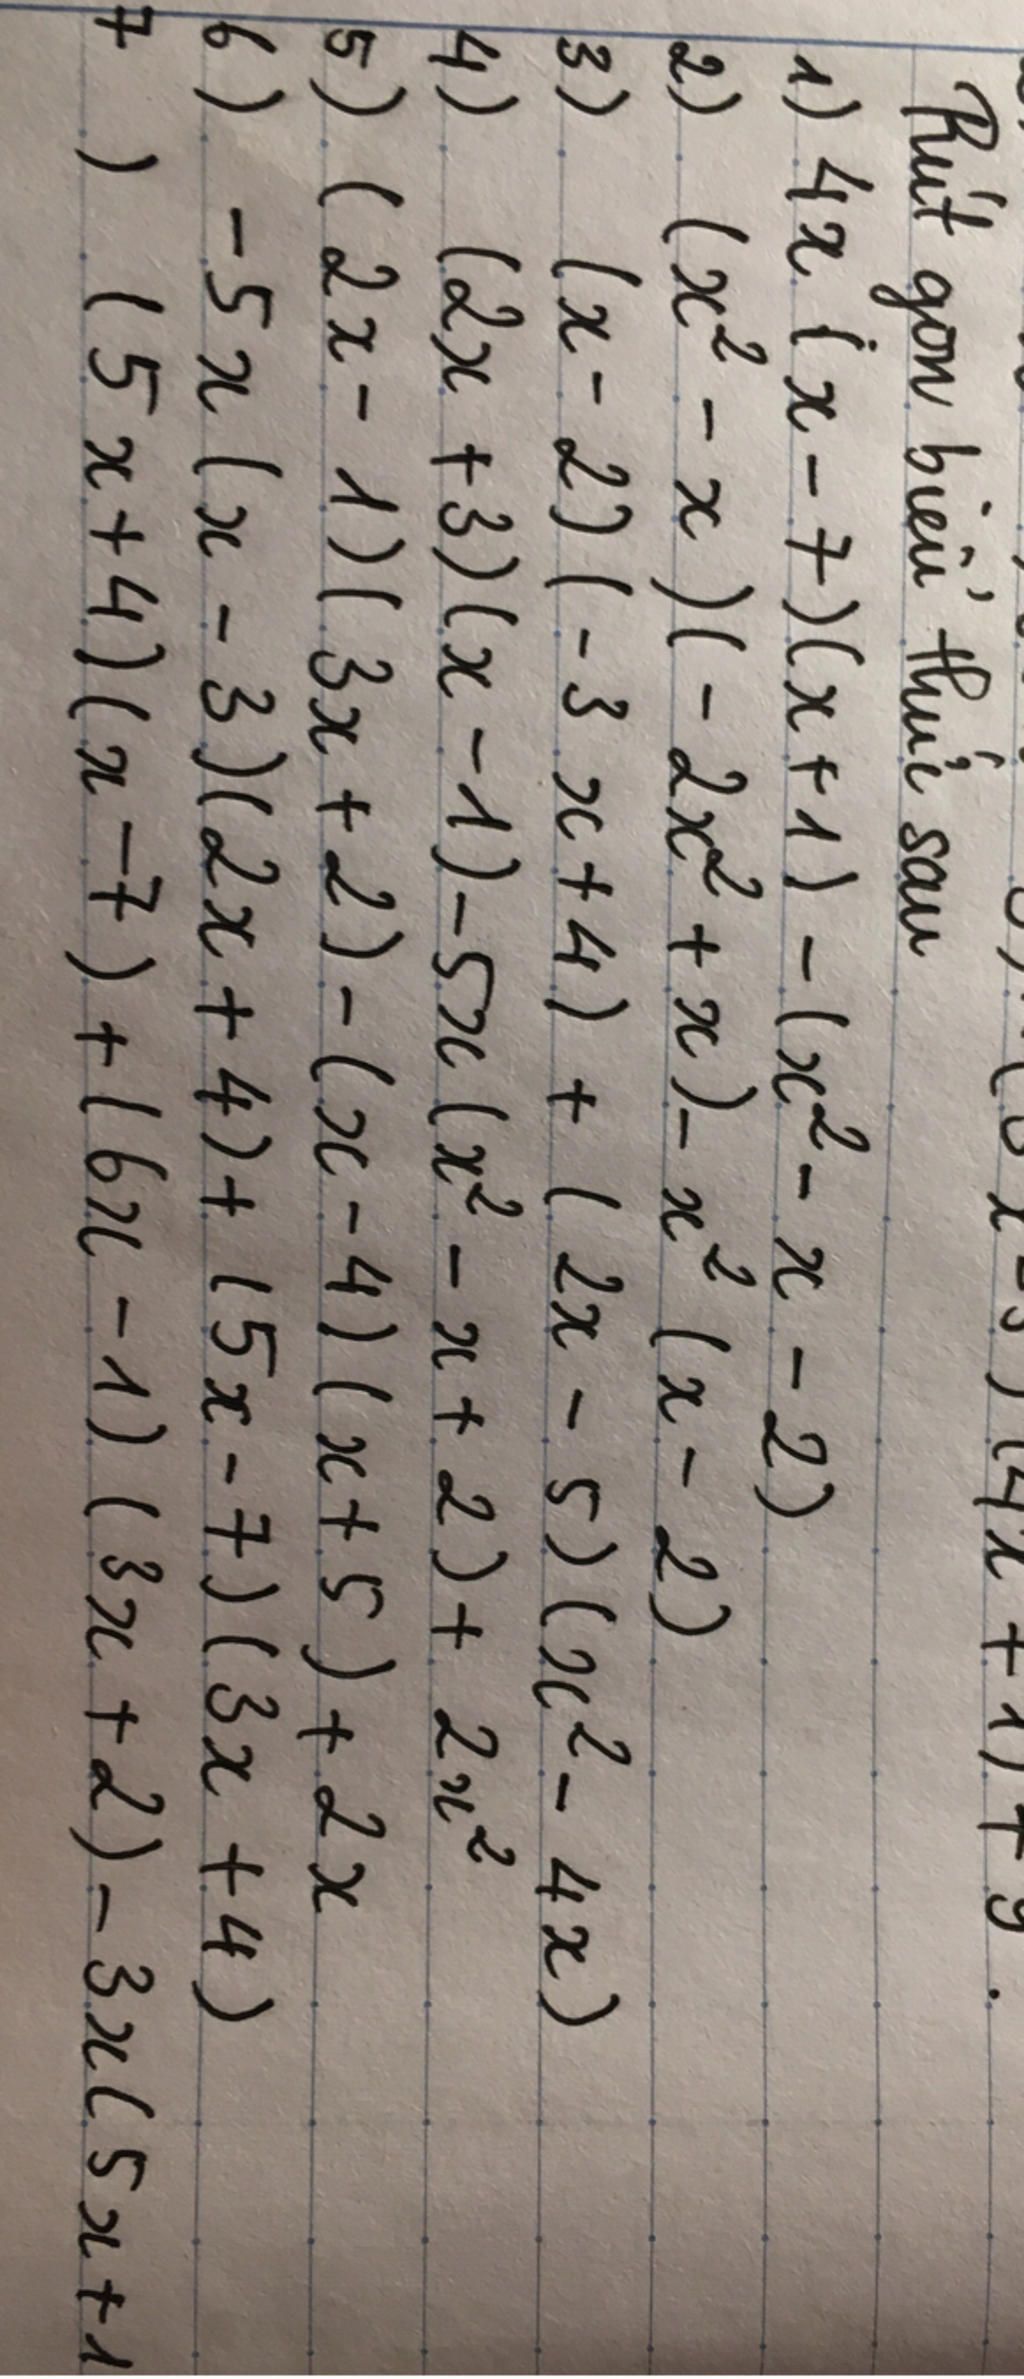 Rút gọn biểu thức sau
1) 4x (x - 7)(x + 1) - (x² - x - 2)
2) (x² - x)(- 2x² + x) - x² (x - 2)
3) (x - 2)(- 3x + 4) + (2x - 5)(x² - 4x)
4) (2x + 3)(x - 1) - 5x (x² - x + 2) + 2x²
5) (2x - 1)(3x + 2) - (x - 4)(x + 5) + 2x
6) - 5x (x - 3)(2x + 4) + (5x - 7)(3x + 4)
7) (5x + 4)(x - 7) + (6x - 1)(3x + 2) - 3x (5x + 1